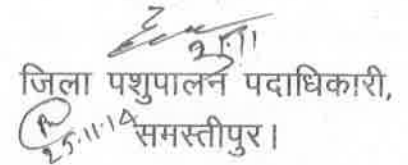 25.11
जिला पशुपालन पदाधिकारी,
25.11.14
समस्तीपुर।